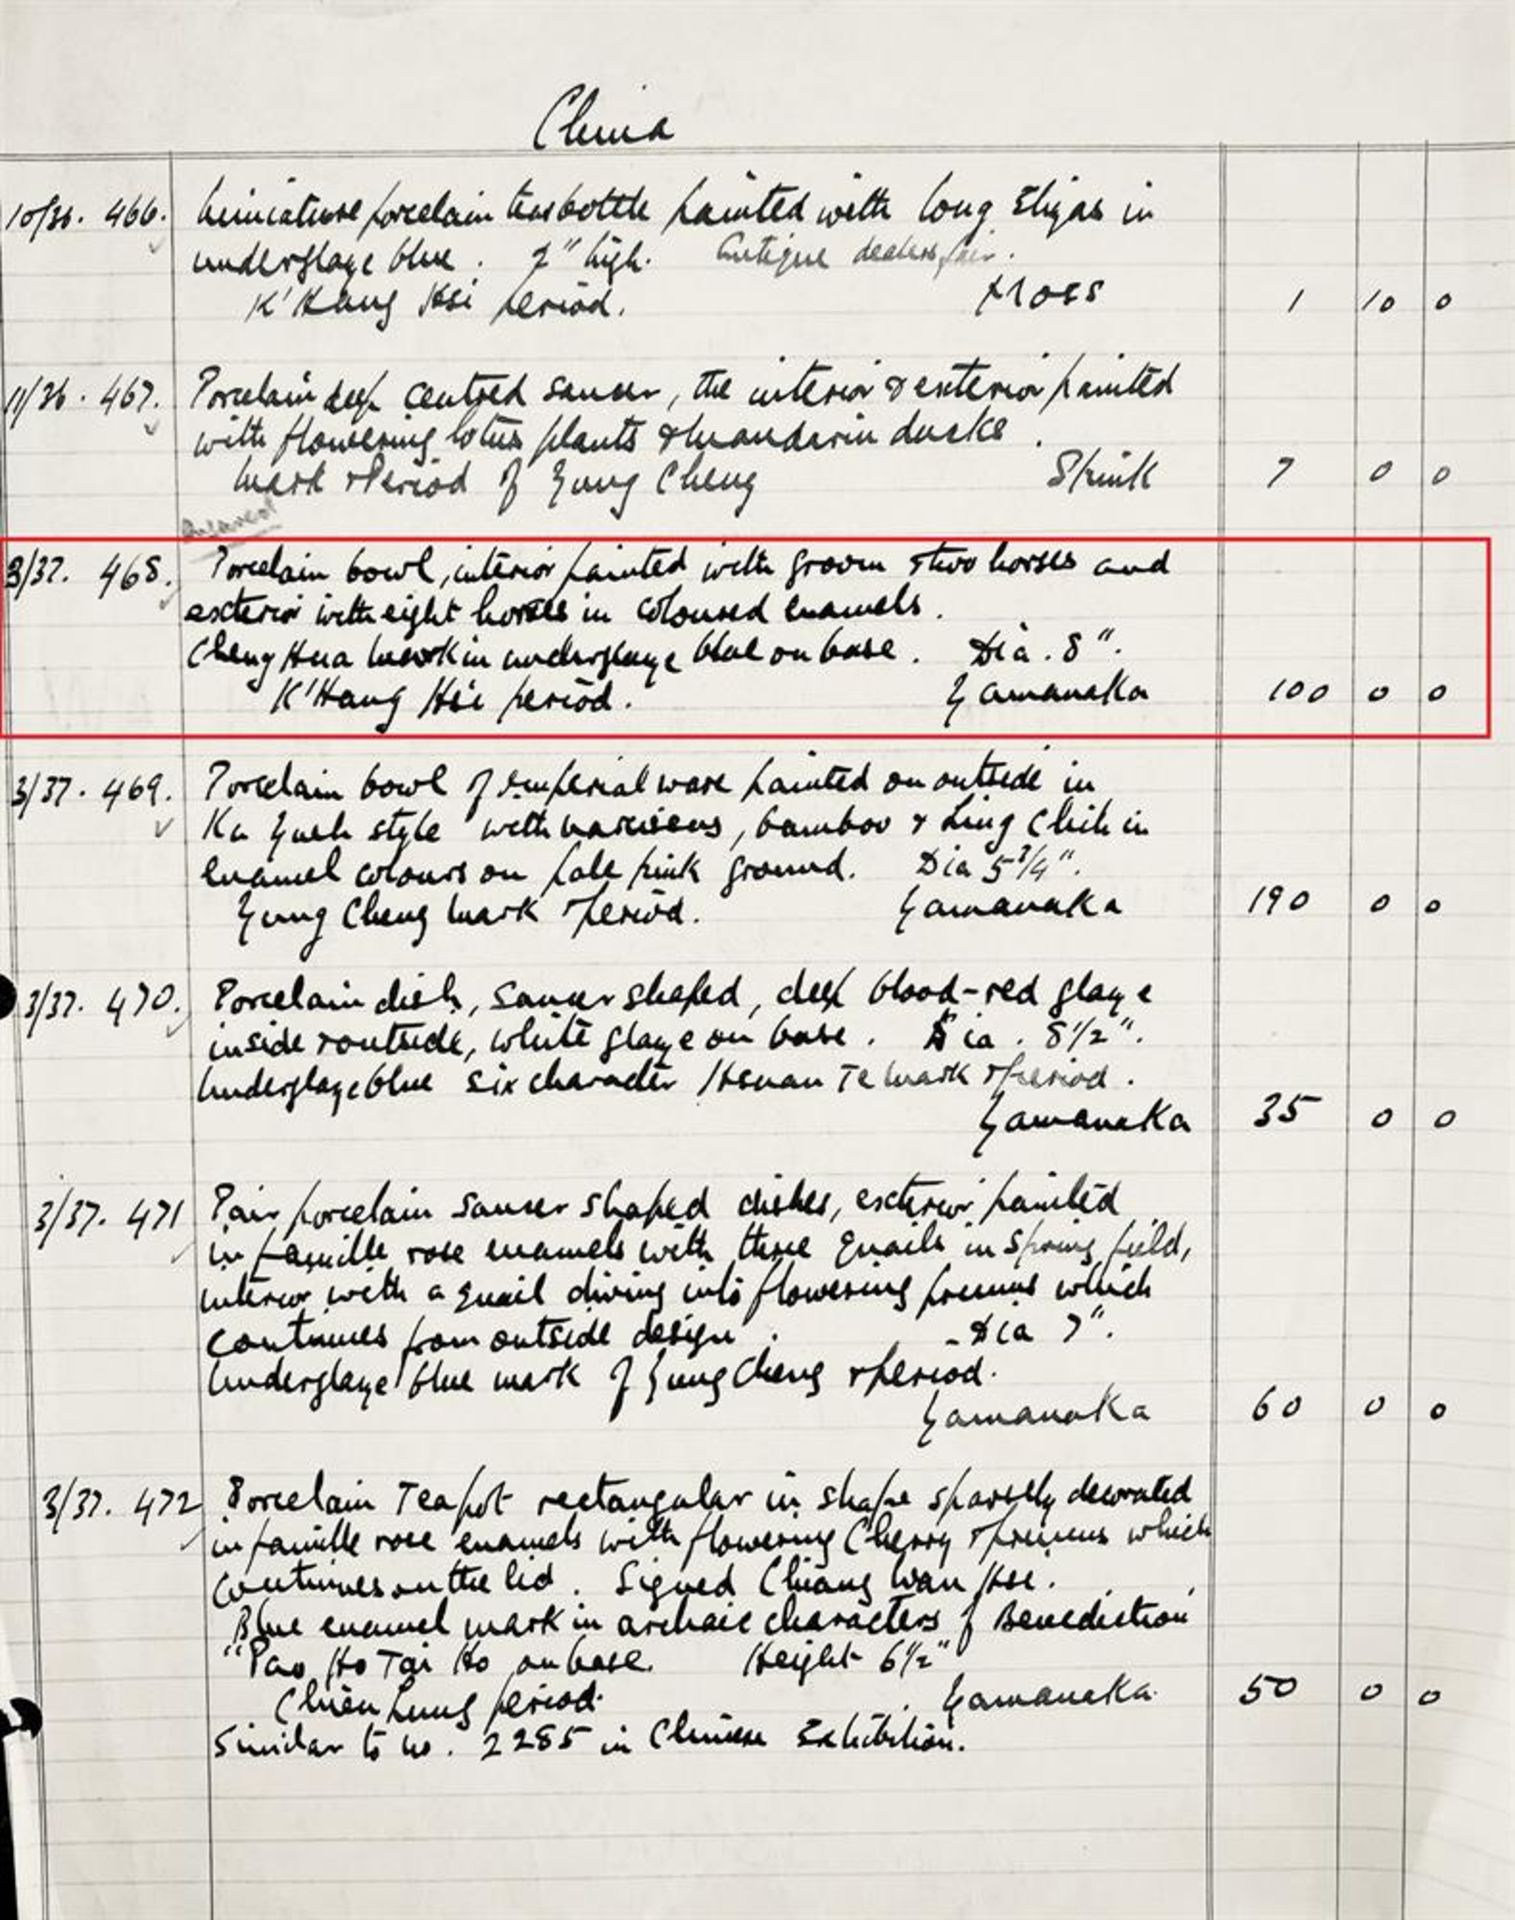 China
10/36. 466. Miniature porcelain tea bottle painted with long Elizas in
underglaze blue. 2" high. Antique dealers fair.
K'Hang Hsi period. Moss 1 10 0
11/36. 467. Porcelain deep centred saucer, the interior & exterior painted
with flowering lotus plants & mandarin ducks.
Mark & Period of Yung Cheng Spink 7 0 0
3/37. 468. Porcelain bowl, interior painted with groom & two horses and
exterior with eight horses in coloured enamels.
Cheng Hua mark in underglaze blue on base. Dia. 8".
K'Hang Hsi period. Yamanaka 100 0 0
3/37. 469. Porcelain bowl of imperial ware painted on outside in
Ku Yueh style with narcissus, bamboo & Ling Chih in
enamel colours on pale pink ground. Dia 5 3/4".
Yung Cheng mark & period. Yamanaka 190 0 0
3/37. 470. Porcelain dish, saucer shaped, deep blood-red glaze
inside & outside, white glaze on base. Dia. 8 1/2".
Underglaze blue six character Hsuan Te mark & period.
Yamanaka 35 0 0
3/37. 471 Pair porcelain saucer shaped dishes, exterior painted
in famille rose enamels with three Quails in Spring field,
interior with a quail diving into flowering prunus which
continues from outside design. Dia 7".
Underglaze blue mark of Yung Cheng & period.
Yamanaka 60 0 0
3/37. 472 Porcelain Teapot rectangular in shape sparsely decorated
in famille rose enamels with flowering Cherry & prunus which
continues on the lid. Signed Chiang Wan Hse.
Blue enamel mark in archaic characters of Benediction
"Pao Ho Tai Ho on base. Height 6 1/2"
Chien Lung period. Yamanaka. 50 0 0
Similar to no. 2285 in Chinese Exhibition.